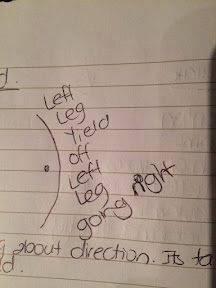 d.
Left
Leg
Yield
Off
Left
Leg
going right
g about direction. Its ta
d.